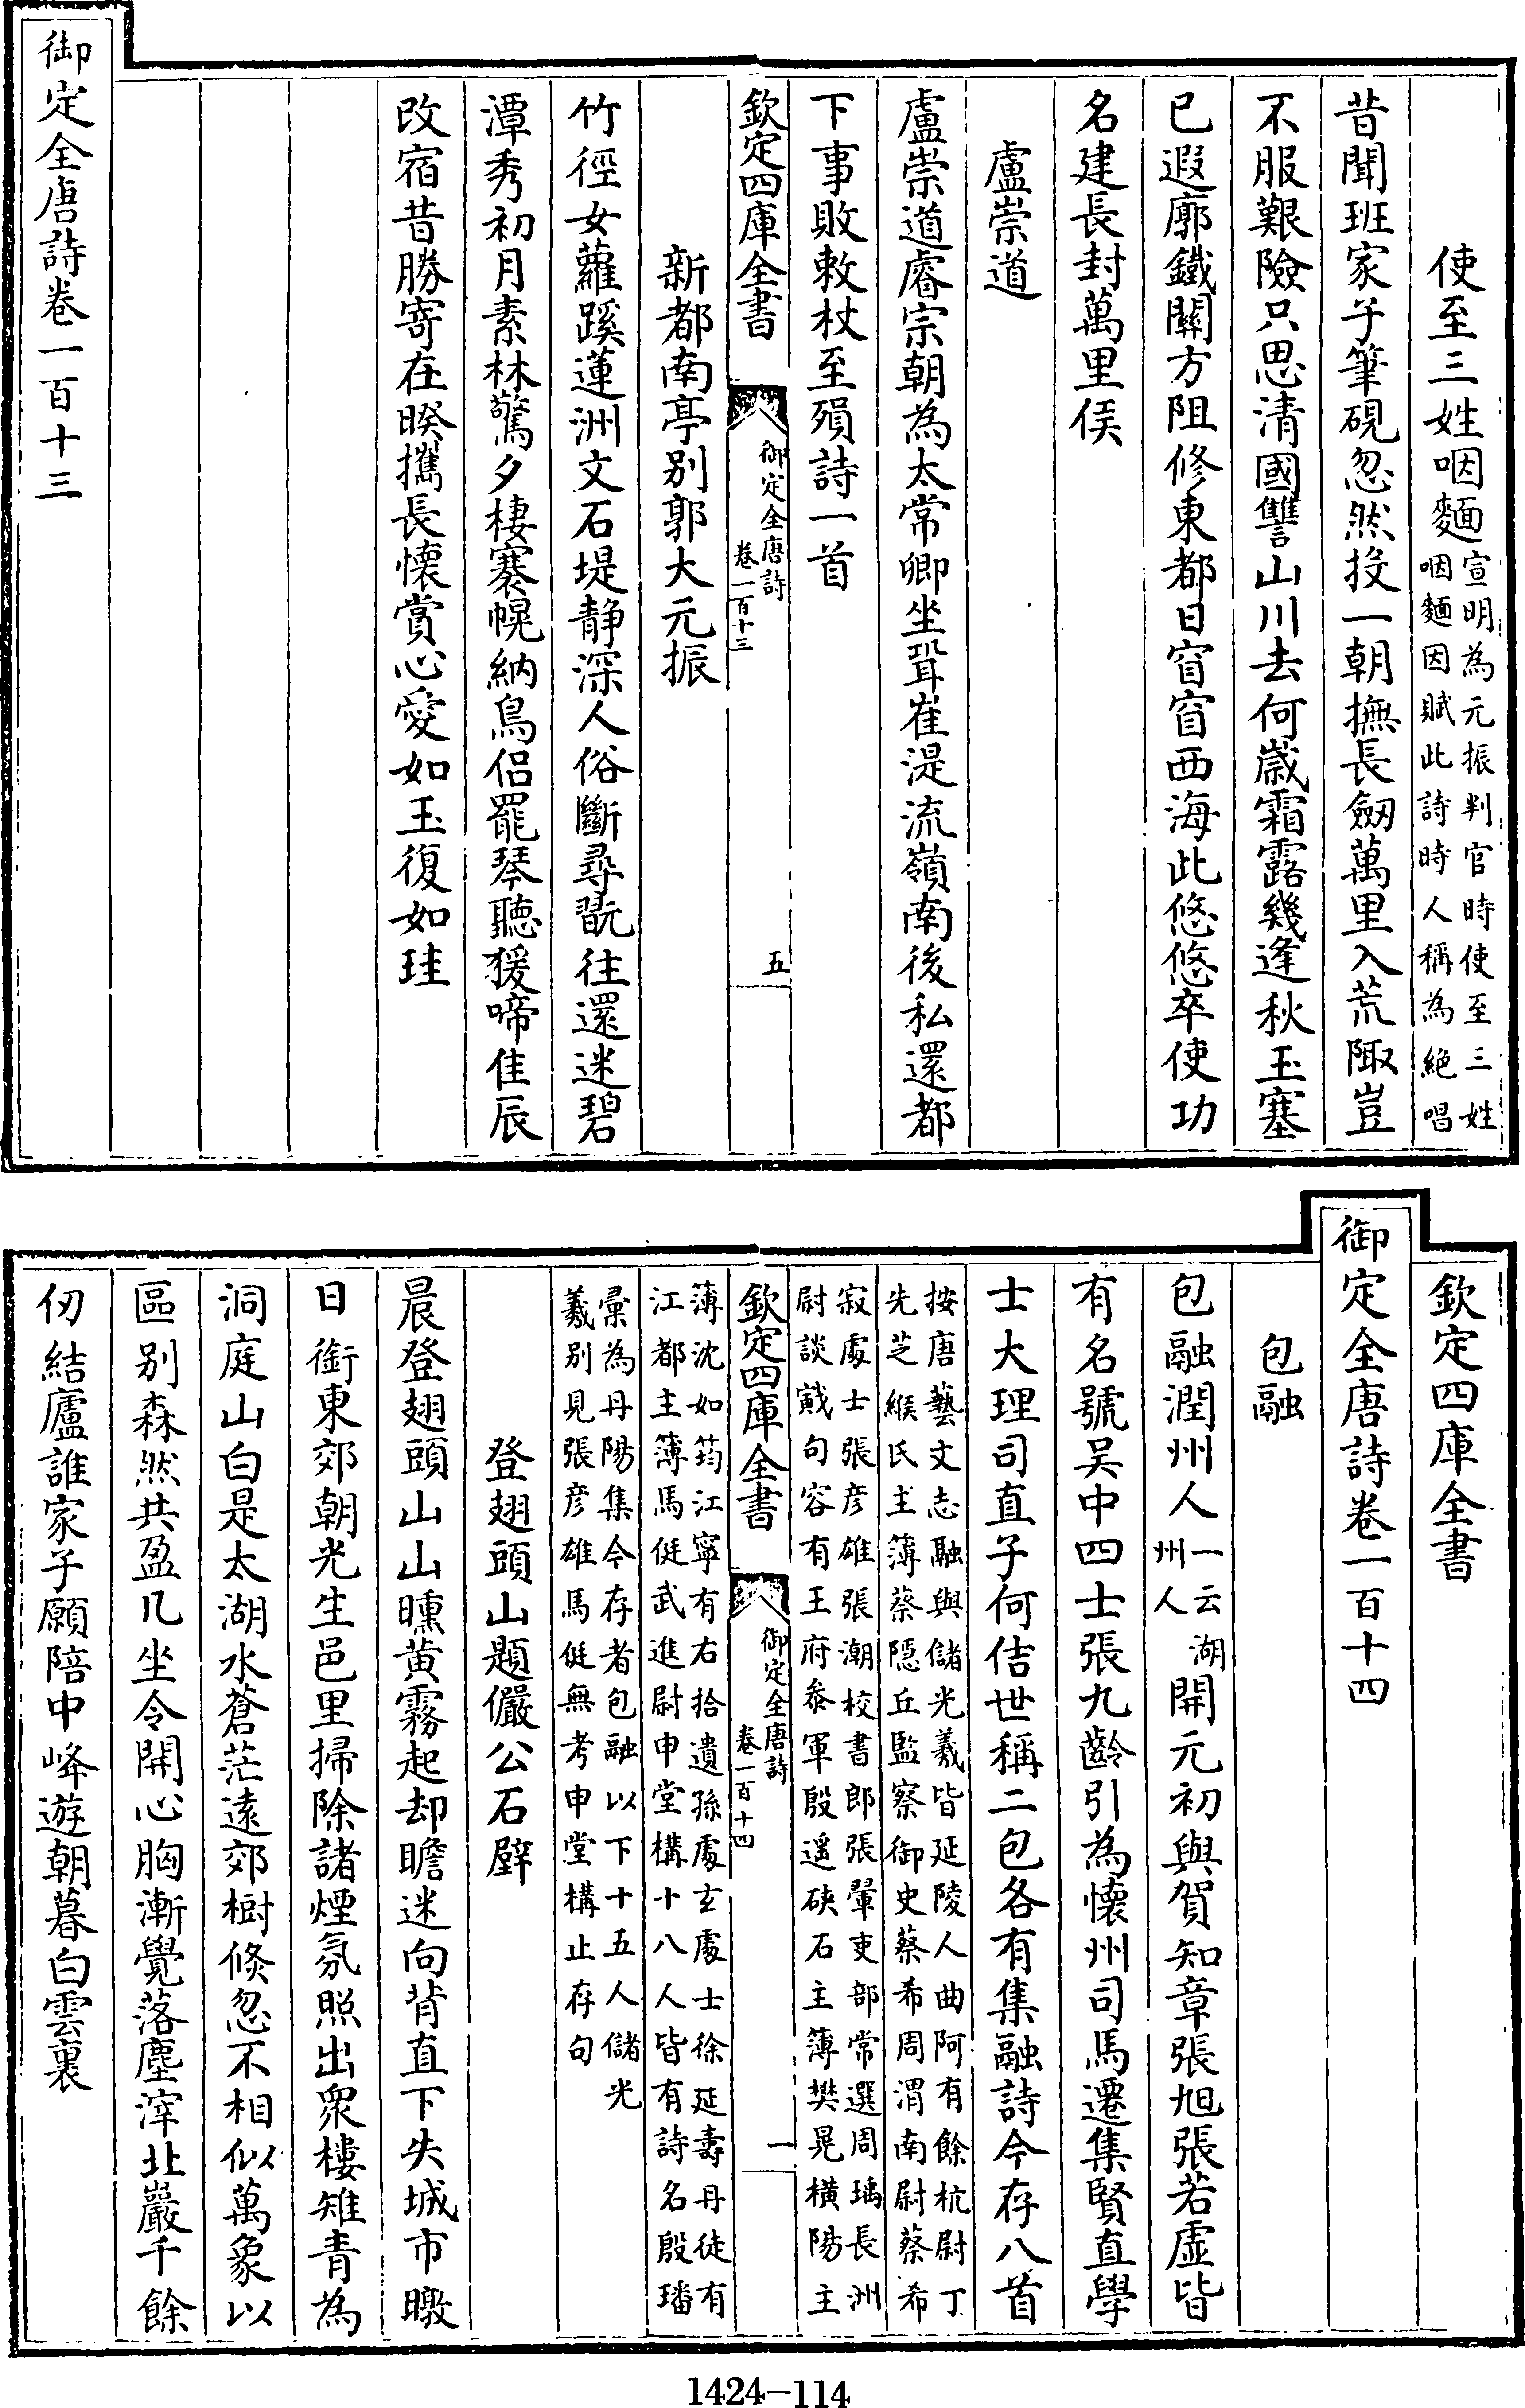 使至三姓咽麵宣明為元振判官時使至三姓咽麵因賦此詩時人稱為絶唱
昔聞班家子筆硯忽然投一朝撫長劒萬里入荒陬豈
不服艱險只思清國讐山川去何歲霜露幾逢秋玉塞
已遐廓鐵關方阻修東都日窅窅西海此悠悠卒使功
名建長封萬里侯
盧崇道
盧崇道睿宗朝為太常卿坐聓崔湜流嶺南後私還都
下事敗敕杖至殞詩一首
欽定四庫全書
御定全唐詩
卷一百十三
五
新都南亭别郭大元振
竹徑女蘿蹊蓮洲文石堤静深人俗斷尋翫往還迷碧
潭秀初月素林驚夕棲褰幌納鳥侣罷琴聽猨啼佳辰
改宿昔勝寄在暌攜長懷賞心愛如玉復如珪
御定全唐詩卷一百十三
欽定四庫全書
御定全唐詩卷一百十四
包融
包融潤州人一云湖州人開元初與賀知章張旭張若虚皆
有名號吴中四士張九齡引為懷州司馬遷集賢直學
士大理司直子何佶世稱二包各有集融詩今存八首
按唐藝文志融與儲光羲皆延陵人曲阿有餘杭尉丁
先芝緱氏主簿蔡隱丘監察御史蔡希周渭南尉蔡希
寂處士張彦雄張潮校書郎張暈吏部常選周瑀長洲
尉談戭句容有王府叅軍殷遥硤石主簿樊晃横陽主
欽定四庫全書
御定全唐詩
卷一百十四
一
簿沈如筠江寧有右拾遺孫處玄處士徐延壽丹徒有
江都主簿馬侹武進尉申堂構十八人皆有詩名殷璠
彙為丹陽集今存者包融以下十五人儲光
羲别見張彦雄馬侹無考申堂構止存句
登翅頭山題儼公石壁
晨登翅頭山山曛黄霧起却瞻迷向背直下失城市暾
日銜東郊朝光生邑里掃除諸煙氛照出衆樓雉青為
洞庭山白是太湖水蒼茫遠郊樹倐忽不相似萬象以
區别森然共盈几坐令開心胸漸覺落塵滓北巖千餘
仞結廬誰家子願陪中峰遊朝暮白雲裏
1424-114